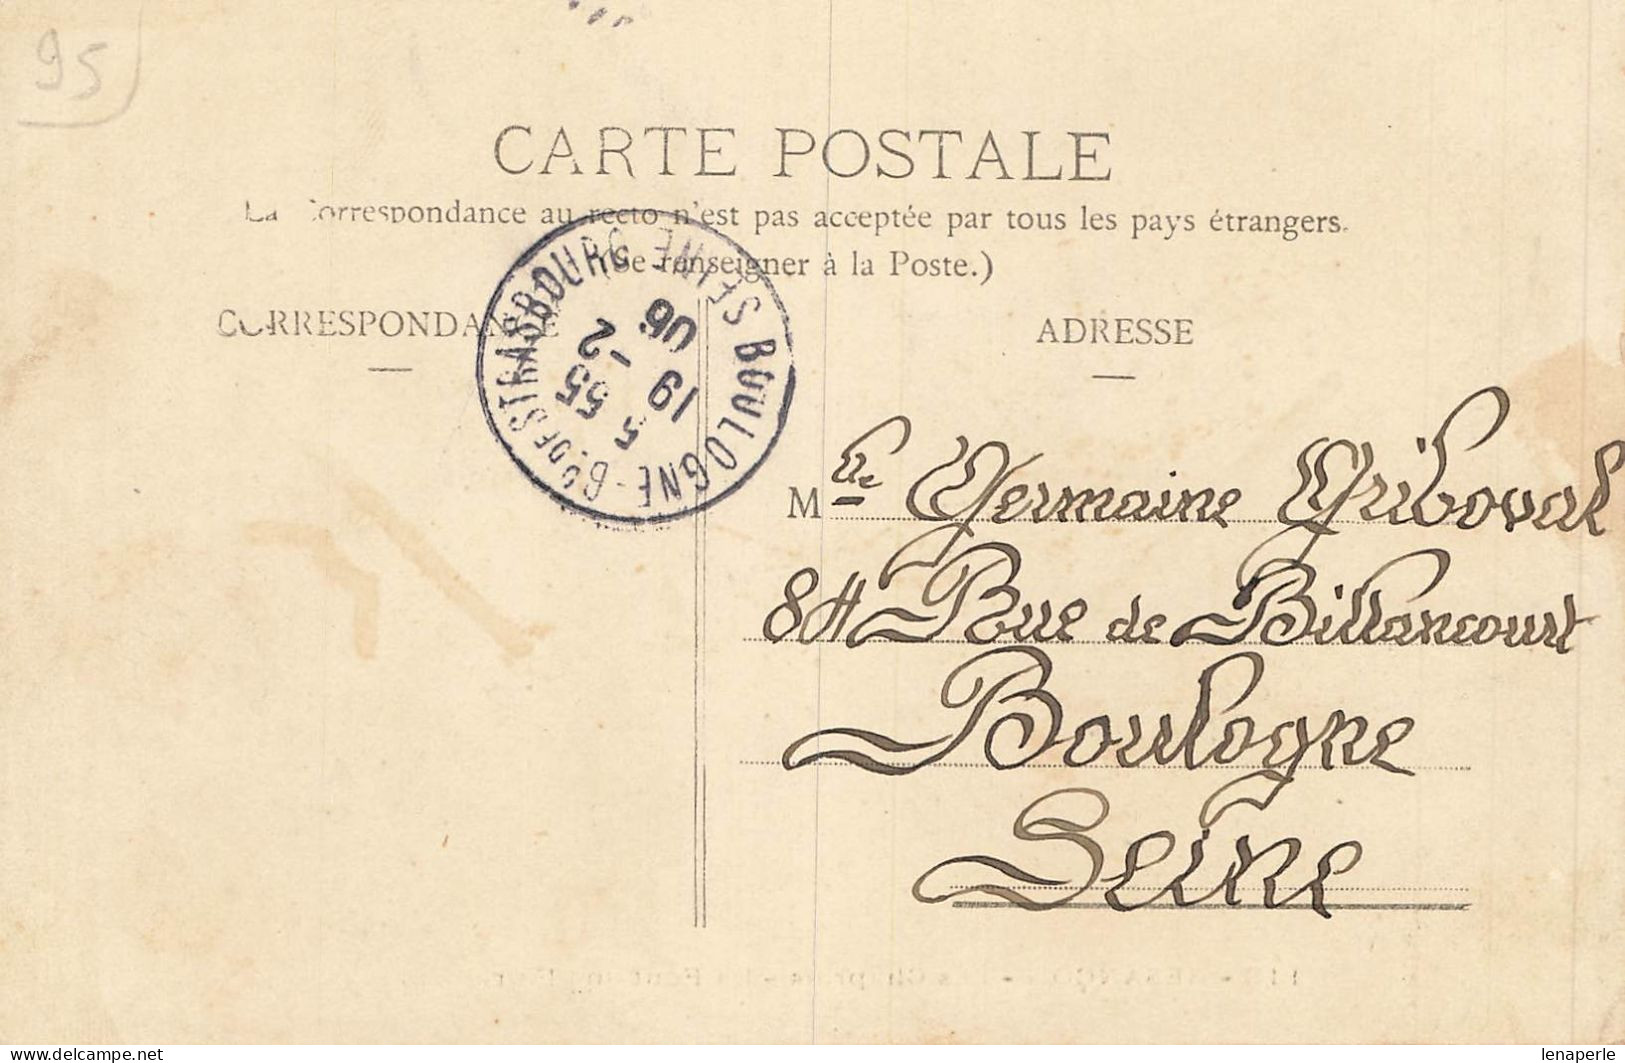 95
CARTE POSTALE
La Correspondance au recto n'est pas acceptée par tous les pays étrangers.
(Se renseigner à la Poste.)
CORRESPONDANCE
ADRESSE
BOULOGNE-BD DE STRASBOURG SEINE
5 55
19 - 2
06
Mlle Germaine Griboval
84 Rue de Billancourt
Boulogne
Seine
lenaperle